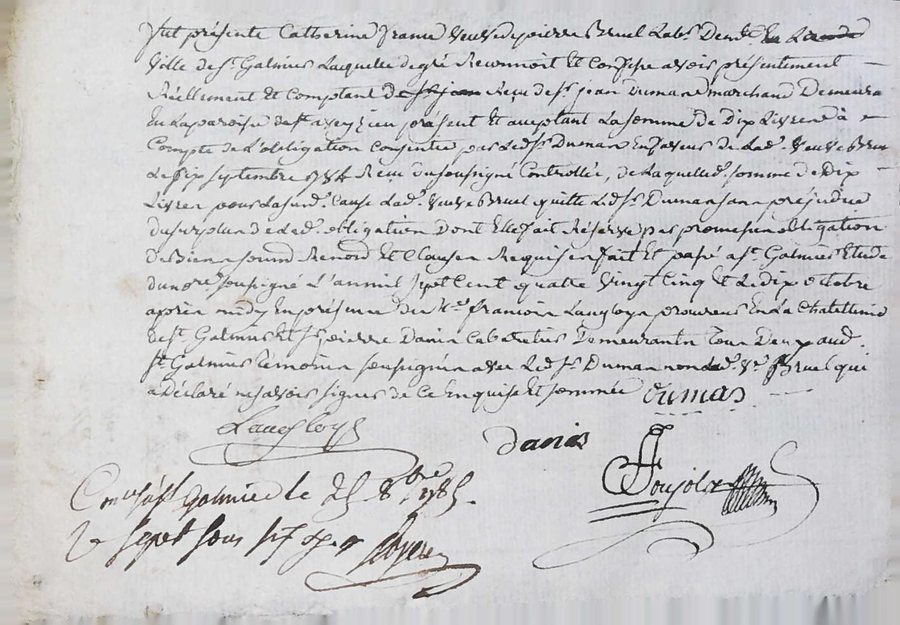 Fut présente Catherine France veuve de pierre Bruel Lab.r De
Ville de s.t Galmier Laquelle de gré Reconnoit Et Confesse avoir présentement
Réellement Et Comptant Reçu de s.r jean Dumas marchand Demeurant
En La paroisse de st présent Et acceptant La somme de Dix Livres à
Compte de L'obligation Consentie par Led. s.r Dumas En faveur de Lad. veuve Bruel
Le septembre 1784 Reçu du soussigné Controllée, de Laquelle somme de Dix
Livres pour La susd. Cause Lad. veuve Bruel quitte Led. s.r Dumas sans préjudice
du surplus de Lad. obligation Dont Elle fait Réserve par promesses obligation
De Biens Renond Et Clauses Requises fait Et passé a s.t Galmier Etude
du no.re soussigné L'an mil sept Cent quatre vingt Cinq Et Le dix octobre
après midy En présence de M.e françois Langloys procureur En La Chatellenie
de s.t Galmier Et s.r pierre Danis Cabaretier Demeurants Tous Deux aud.
s.t Galmier Témoins soussignés avec Led. s.r Dumas non Lad. v.e Bruel qui
a Déclaré ne savoir signer de Ce Enquise Et sommée Dumas
Langloys
Danis
Poujol
st galmier le 25 8bre 1785.
sept sous six